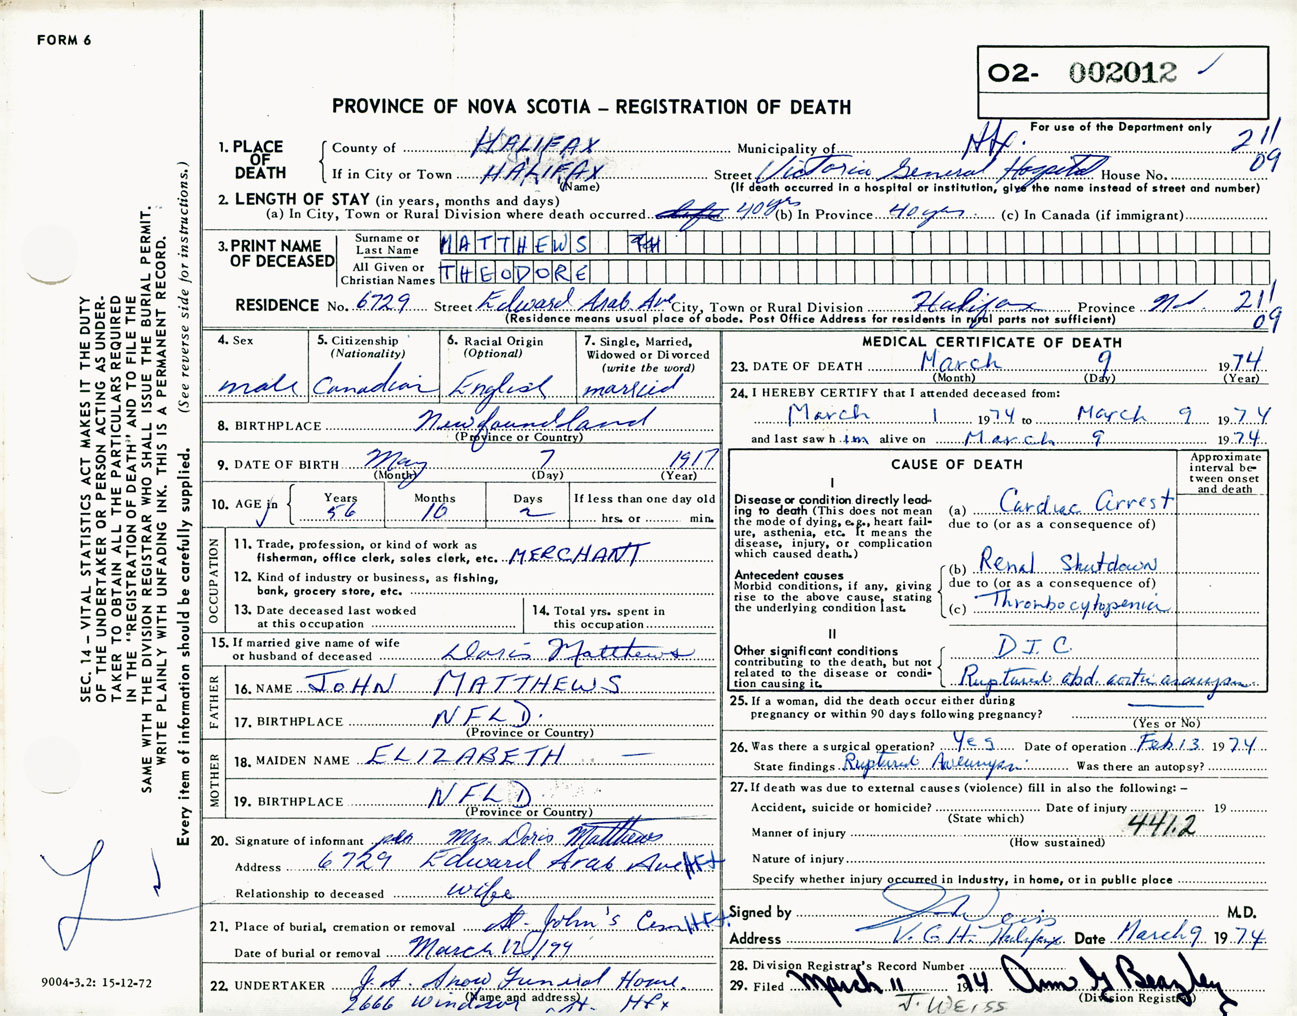 FORM 6
O2- 002012 ✓
PROVINCE OF NOVA SCOTIA – REGISTRATION OF DEATH
For use of the Department only
211
09
1. PLACE OF DEATH
County of HALIFAX Municipality of Hfx.
If in City or Town HALIFAX Street Victoria General Hospital House No.
(Name) (If death occurred in a hospital or institution, give the name instead of street and number)
2. LENGTH OF STAY (in years, months and days)
(a) In City, Town or Rural Division where death occurred 40 yrs (b) In Province 40 yrs (c) In Canada (if immigrant)
3. PRINT NAME OF DECEASED
Surname or Last Name MATTHEWS
All Given or Christian Names THEODORE
RESIDENCE No. 6729 Street Edward Arab Ave City, Town or Rural Division Halifax Province NS 211
09
(Residence means usual place of abode. Post Office Address for residents in rural parts not sufficient)
4. Sex
male
5. Citizenship
(Nationality)
Canadian
6. Racial Origin
(Optional)
English
7. Single, Married, Widowed or Divorced
(write the word)
married
8. BIRTHPLACE Newfoundland
(Province or Country)
9. DATE OF BIRTH May 7 1917
(Month) (Day) (Year)
10. AGE in
Years Months Days If less than one day old
56 10 2 hrs. or min.
OCCUPATION
11. Trade, profession, or kind of work as
fisherman, office clerk, sales clerk, etc. MERCHANT
12. Kind of industry or business, as fishing,
bank, grocery store, etc.
13. Date deceased last worked
at this occupation
14. Total yrs. spent in
this occupation
15. If married give name of wife
or husband of deceased Doris Matthews
FATHER
16. NAME JOHN MATTHEWS
17. BIRTHPLACE NFLD.
(Province or Country)
MOTHER
18. MAIDEN NAME ELIZABETH —
19. BIRTHPLACE NFLD
(Province or Country)
20. Signature of informant per Mrs. Doris Matthews
Address 6729 Edward Arab Ave Hfx
Relationship to deceased wife
21. Place of burial, cremation or removal St. John's Cem Hfx.
Date of burial or removal March 12/74
22. UNDERTAKER J.A. Snow Funeral Home.
(Name and address)
2666 Windsor St. Hfx
MEDICAL CERTIFICATE OF DEATH
23. DATE OF DEATH March 9 1974
(Month) (Day) (Year)
24. I HEREBY CERTIFY that I attended deceased from:
March 1 1974 to March 9 1974
and last saw him alive on March 9 1974
CAUSE OF DEATH
Approximate interval between onset and death
I
Disease or condition directly leading to death (This does not mean the mode of dying, e.g., heart failure, asthenia, etc. It means the disease, injury, or complication which caused death.)
(a) Cardiac arrest
due to (or as a consequence of)
Antecedent causes
Morbid conditions, if any, giving rise to the above cause, stating the underlying condition last.
(b) Renal Shutdown
due to (or as a consequence of)
(c) Thrombocytopenia
II
Other significant conditions
contributing to the death, but not related to the disease or condition causing it.
D.I.C.
Ruptured abd aortic aneurysm
25. If a woman, did the death occur either during
pregnancy or within 90 days following pregnancy? —
(Yes or No)
26. Was there a surgical operation? Yes Date of operation Feb. 13 1974
State findings Ruptured Aneurysm. Was there an autopsy?
27. If death was due to external causes (violence) fill in also the following: –
Accident, suicide or homicide? Date of injury 19
(State which)
441.2
Manner of injury
(How sustained)
Nature of injury
Specify whether injury occurred in Industry, in home, or in public place
Signed by J. Weiss M.D.
Address V.G.H. Halifax Date March 9 1974
28. Division Registrar's Record Number
29. Filed March 11 1974 Ann G Beazley
(Division Registrar)
J. WEISS
SEC. 14 – VITAL STATISTICS ACT MAKES IT THE DUTY
OF THE UNDERTAKER OR PERSON ACTING AS UNDER.
TAKER TO OBTAIN ALL THE PARTICULARS REQUIRED
IN THE "REGISTRATION OF DEATH" AND TO FILE THE
SAME WITH THE DIVISION REGISTRAR WHO SHALL ISSUE THE BURIAL PERMIT.
WRITE PLAINLY WITH UNFADING INK. THIS IS A PERMANENT RECORD.
Every item of information should be carefully supplied. (See reverse side for instructions.)
9004-3.2: 15-12-72